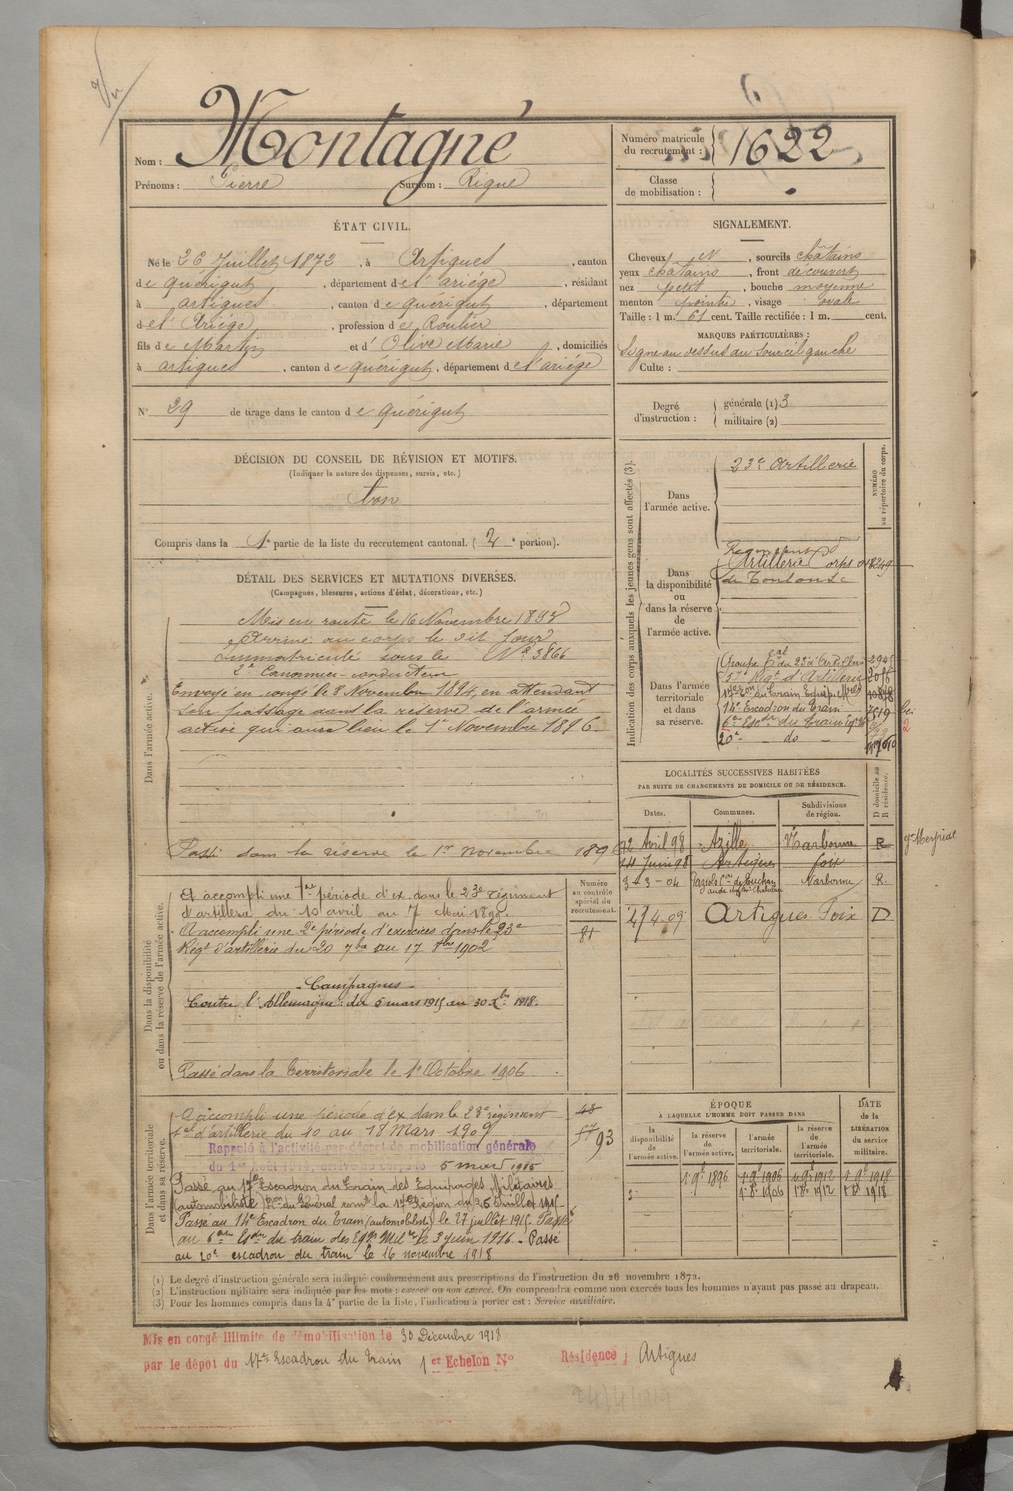 Montagné
Nom :
Numéro matricule
du recrutement : 1622
Prénoms : Pierre Surnom : Rigue
Classe
de mobilisation :
ÉTAT CIVIL.
Né le 26 Juillet 1872, à Artigues, canton
de quérigut, département de l'ariége, résidant
à artigues, canton de quérigut, département
de l'Ariége, profession de Routier
fils de Martin et d' Olive Marie, domiciliés
à artigues, canton de quérigut, département de l'ariége
N° 29 de tirage dans le canton de quérigut
SIGNALEMENT.
Cheveux et N, sourcils châtains
yeux châtains, front découvert
nez petit, bouche moyenne
menton pointu, visage ovale
Taille : 1 m. 61 cent. Taille rectifiée : 1 m. cent.
MARQUES PARTICULIÈRES :
Signe au dessus du sourcil gauche
Culte :
Degré
d'instruction :
générale (1) 3
militaire (2)
DÉCISION DU CONSEIL DE RÉVISION ET MOTIFS.
(Indiquer la nature des dispenses, sursis, etc.)
bon
Compris dans la 1e partie de la liste du recrutement cantonal. (2e portion).
DÉTAIL DES SERVICES ET MUTATIONS DIVERSES.
(Campagnes, blessures, actions d'éclat, décorations, etc.)
Dans l'armée active.
Mis en route le 16 Novembre 1893
Arrivé au corps le dit jour
immatriculé sous le N° 3866
2e Canonnier-conducteur
Envoyé en congé le 8 Novembre 1894, en attendant
son passage dans la réserve de l'armée
active qui aura lieu le 1er Novembre 1896.
Passé dans la réserve le 1er novembre 1896
Dans la disponibilité
ou dans la réserve de l'armée active.
Numéro
au contrôle
spécial du
recrutement.
81
A accompli une 1ère période d'ex. dans le 23e régiment
d'artillerie du 10 avril au 7 Mai 1899.
A accompli une 2e période d'exercices dans le 23e
Régt d'artillerie du 20 7bre au 17 8bre 1902
Campagnes
Contre l'Allemagne : du 5 mars 1915 au 30 Xbre 1918.
Passé dans la territoriale le 1er Octobre 1906
Dans l'armée territoriale
et dans sa réserve.
A accompli une période d'ex dans le 23e régiment
tal d'artillerie du 10 au 18 Mars 1909
93
Rappelé à l'activité par décret de mobilisation générale
du 1er Août 1914, arrivé au corps le 5 mars 1915
Passé au 17e Escadron du Train des Equipages Militaires
(automobiliste) du Général comt la 17e Région du 25 Juillet 1915.
Passé au 14e Escadron du Train (automobiliste) le 27 juillet 1915. Passé
au 6eme Esdon du train des Eqp. Milres le 3 juin 1916. Passé
au 20e escadron du train le 16 novembre 1918
Indication des corps auxquels les jeunes gens sont affectés (3).
NUMÉRO
au répertoire du corps.
Dans
l'armée active.
23e Artillerie
Dans
la disponibilité
ou
dans la réserve
de
l'armée active.
Régiment d'
Artillerie
de Toulouse
Dans l'armée
territoriale
et dans
sa réserve.
Groupe tal du 23e d'Artillerie
57e Régt d'Artillerie
17e Eson du Train Equip. Mres
14e Escadron du Train 7519
6e Escdon du Train Eq. Mres
20e - do -
LOCALITÉS SUCCESSIVES HABITÉES
PAR SUITE DE CHANGEMENTS DE DOMICILE OU DE RÉSIDENCE.
Dates. Communes. Subdivisions
de région. D domicile ou
R résidence.
22 Avril 98 Azille Narbonne R
14 Juin 98 Artigues foix
3-3-04 Narbonne R.
2/4.09 Artigues Foix D
ÉPOQUE
À LAQUELLE L'HOMME DOIT PASSER DANS
DATE
de la
LIBÉRATION
du service
militaire.
la
disponibilité
de
l'armée active.
la réserve
de
l'armée active.
l'armée
territoriale.
la réserve
de
l'armée
territoriale.
1 9e 1896 1 9e 1906 1 9e 1912 1 9e 1918
1 8e 1906 1 8e 1912 1 8e 1918
(1) Le degré d'instruction générale sera indiqué conformément aux prescriptions de l'instruction du 26 novembre 1872.
(2) L'instruction militaire sera indiquée par les mots : exercé ou non exercé. On comprendra comme non exercés tous les hommes n'ayant pas passé au drapeau.
(3) Pour les hommes compris dans la 4e partie de la liste, l'indication à porter est : Service auxiliaire.
Mis en congé illimité de démobilisation le 30 Décembre 1918
par le dépôt du 17e Escadron du Train 1er Echelon N° Résidence Artigues